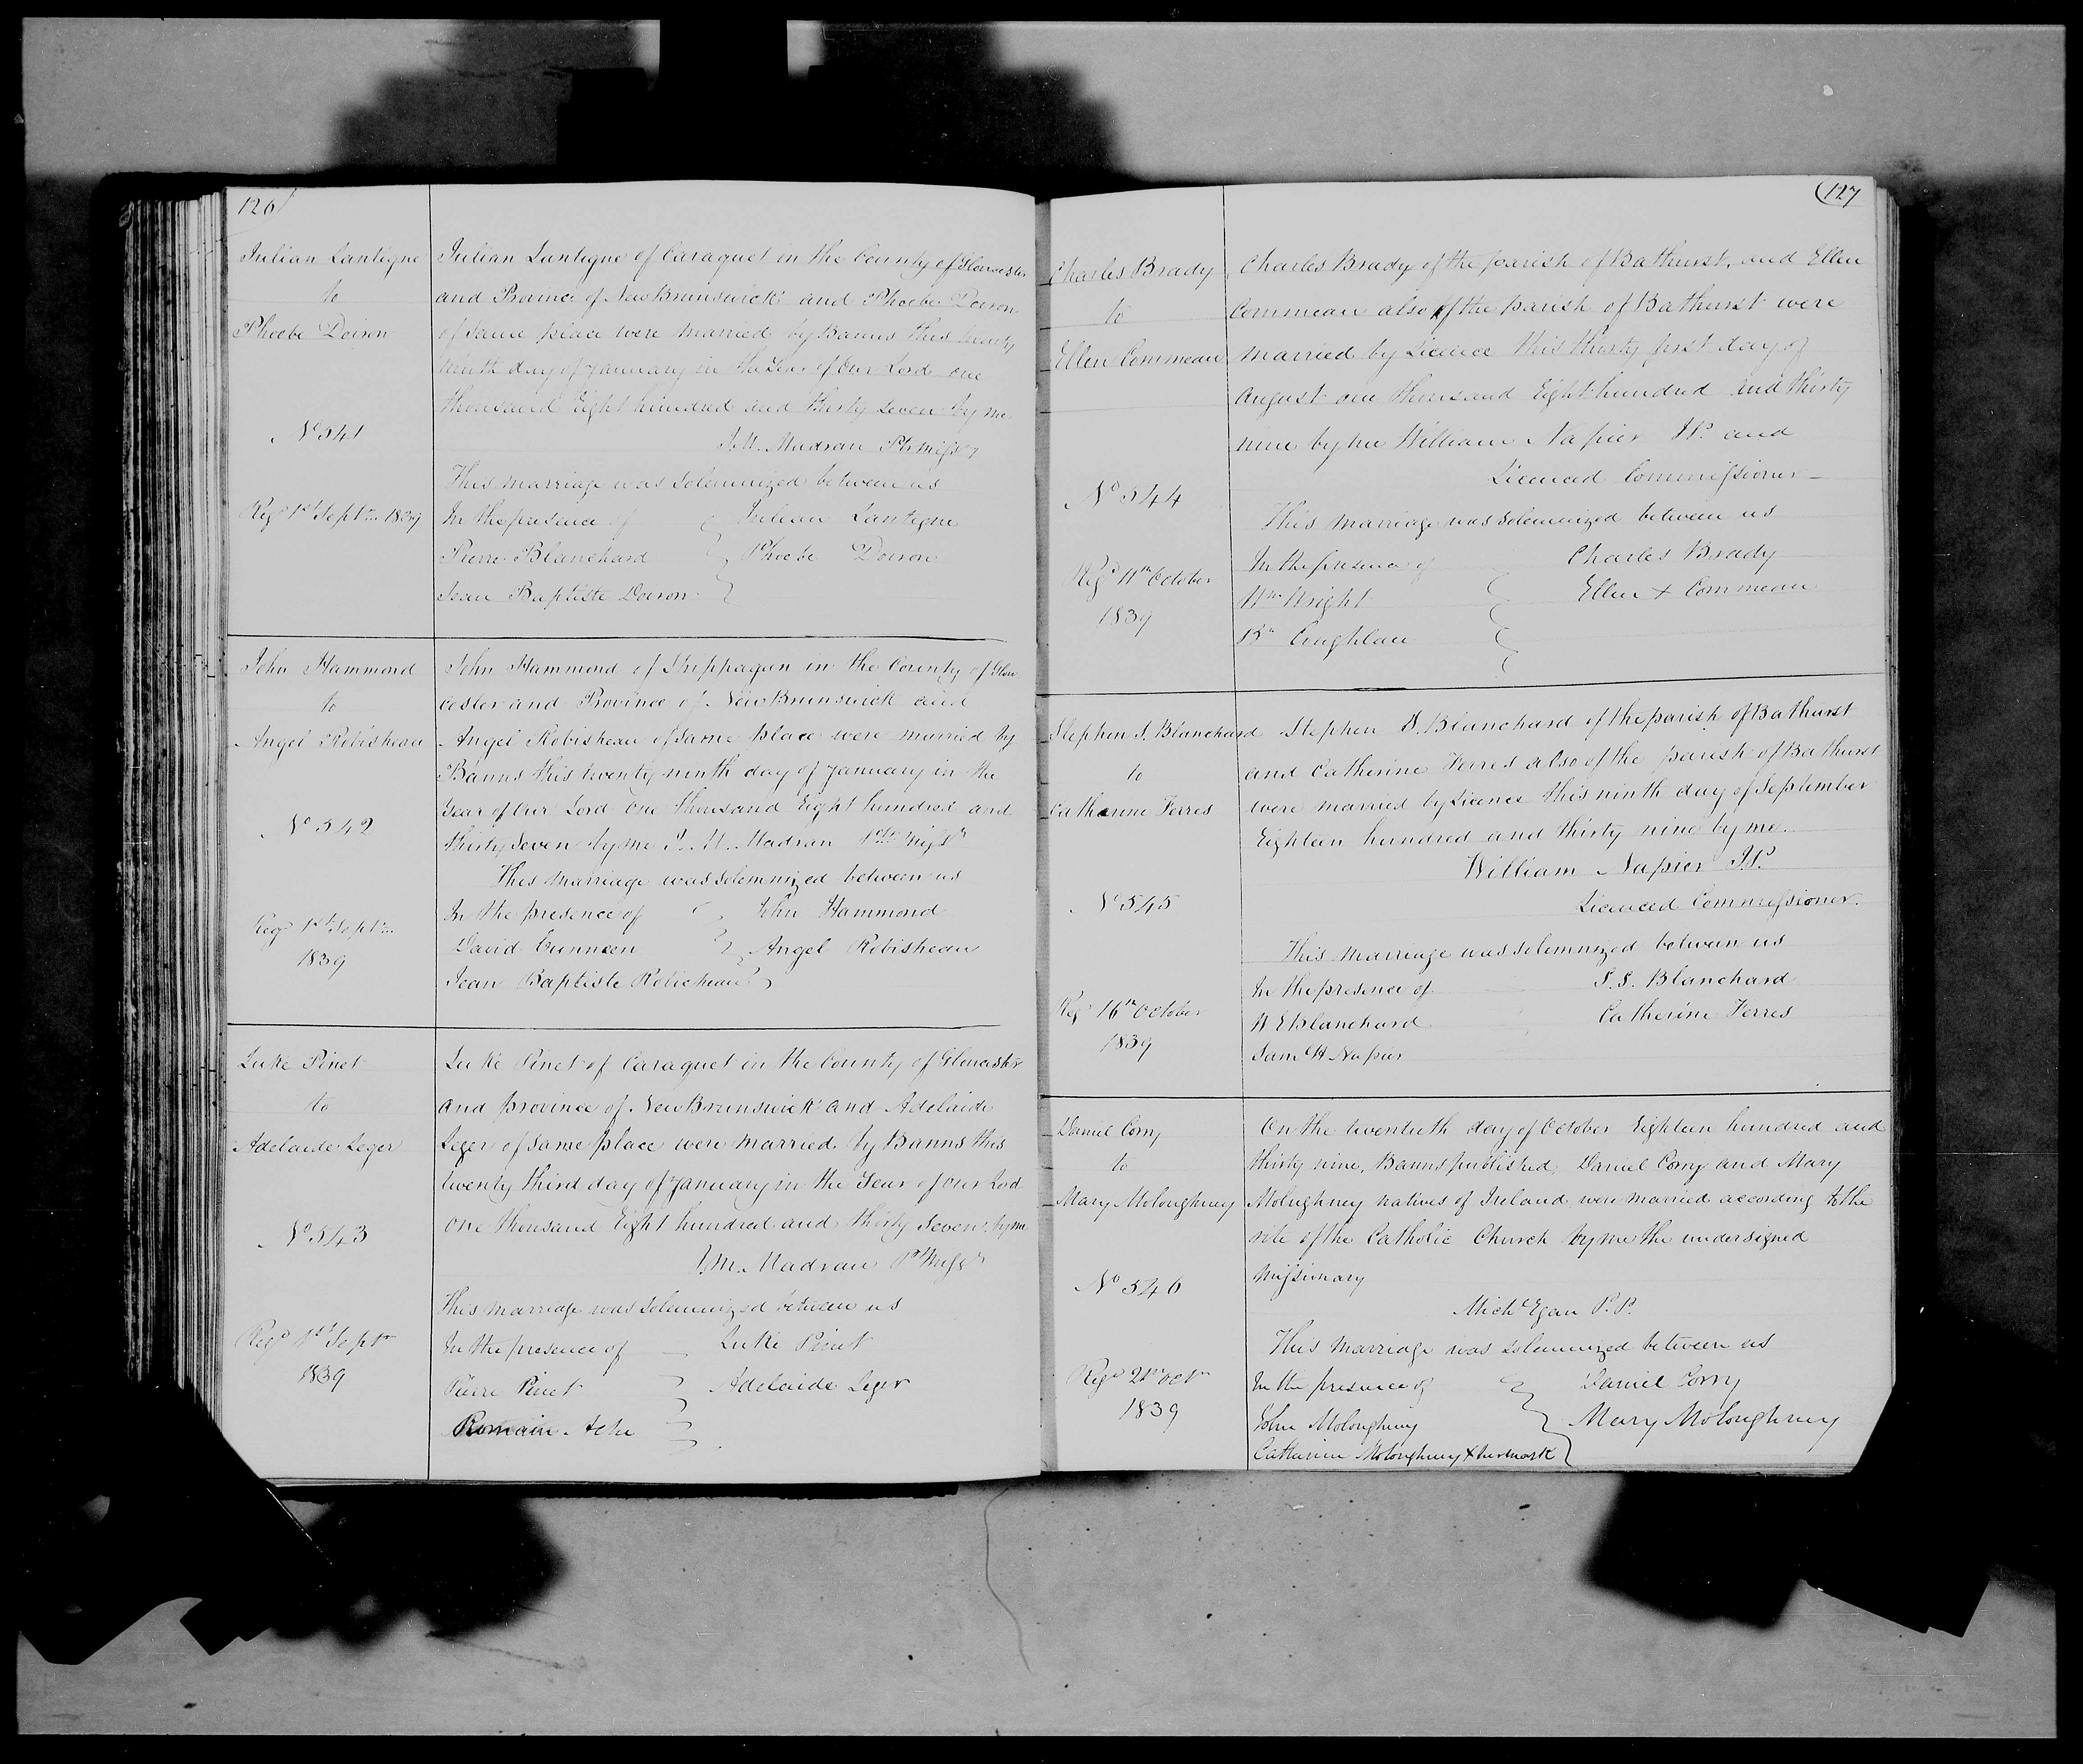 126
Julian Lantigne
to
Phoebe Doiron
No 541
Regd 1st Septr 1839
Julian Lantigne of Caraquet in the County of Gloucester
and Province of New Brunswick and Phoebe Doiron
of same place were married by Banns this twenty
ninth day of January in the Year of Our Lord one
thousand Eight hundred and thirty seven by me
J. M. Madran Ptr Missy
This marriage was solemnized between us
In the presence of Julian Lantigne
Pierre Blanchard Phoebe Doiron
Jean Baptiste Doiron
John Hammond
to
Angel Robisheau
No 542
Regd 1st Septr
1839
John Hammond of Shippagan in the County of Glou
cester and Province of New Brunswick and
Angel Robisheau of same place were married by
Banns this twenty ninth day of January in the
Year of Our Lord One thousand Eight hundred and
thirty seven by me J. M. Madran Ptr Missr
This marriage was solemnized between us
In the presence of John Hammond
David Cunneen Angel Robisheau
Jean Baptiste Robicheau
Luke Pinet
to
Adelaide Leger
No 543
Regd 1st Septr
1839
Luke Pinet of Caraquet in the County of Gloucester
and province of New Brunswick and Adelaide
Leger of same place were married by Banns this
twenty third day of January in the Year of our Lord
one thousand Eight hundred and thirty seven by me
J. M. Madran Pt Missr
This marriage was solemnized between us
In the presence of Luke Pinet
Pierre Pinet Adelaide Leger
Romain Ache
127
Charles Brady
to
Ellen Commeau
No 544
Regd 11th October
1839
Charles Brady of the parish of Bathurst, and Ellen
Commeau also of the parish of Bathurst were
married by Licence this thirty first day of
August one thousand Eight hundred and thirty
nine by me William Napier JP. and
Licenced Commissioner
This marriage was solemnized between us
In the presence of Charles Brady
Wm Wright Ellen + Commeau
Bn Coughlan
Stephen S. Blanchard
to
Catherine Ferres
No 545
Regd 16th October
1839
Stephen S. Blanchard of the parish of Bathurst
and Catherine Ferres also of the parish of Bathurst
were married by Licence this ninth day of September
Eighteen hundred and thirty nine by me.
William Napier J.P.
Licenced Commissioner.
This marriage was solemnized between us
In the presence of S. S. Blanchard
W E Blanchard Catherine Ferres
Saml H Napier
Daniel Corry
to
Mary Moloughney
No 546
Regd 21st Octr
1839
On the twentieth day of October Eighteen hundred and
thirty nine, Banns published, Daniel Corry and Mary
Moloughney natives of Ireland were married according to the
rite of the Catholic Church by me the undersigned
Missionary
Michl Egan P. P.
This marriage was solemnized between us
In the presence of Daniel Corry
John Moloughney Mary Moloughney
Catharine Moloughney X her mark